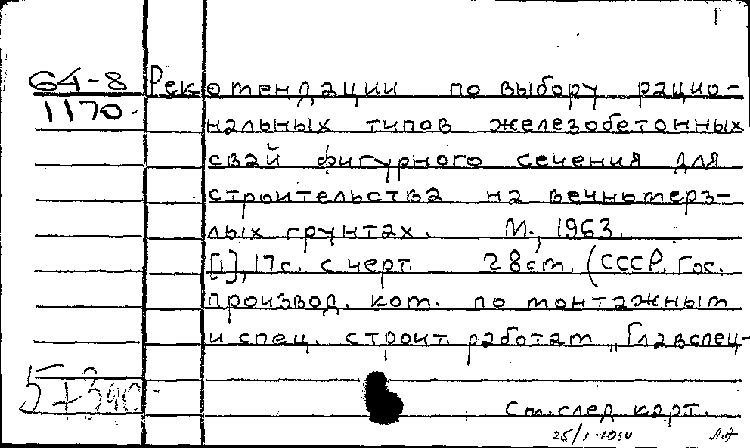 1
64-8
1170.
Рекомендации по выбору рацио-
нальных типов железобетонных
свай фигурного сечения для
строительства на вечномерз-
лых грунтах. М., 1963.
[1], 17с. с черт. 28см. (СССР. Гос.
производ. ком. по монтажным
и спец. строит. работам „Главспец-
См. след. карт.